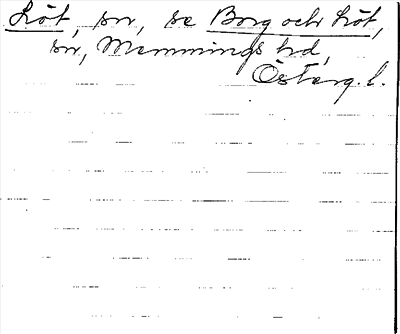 Löt, sn, se Borg och Löt,
sn, Memmings hd,
Österg. l.